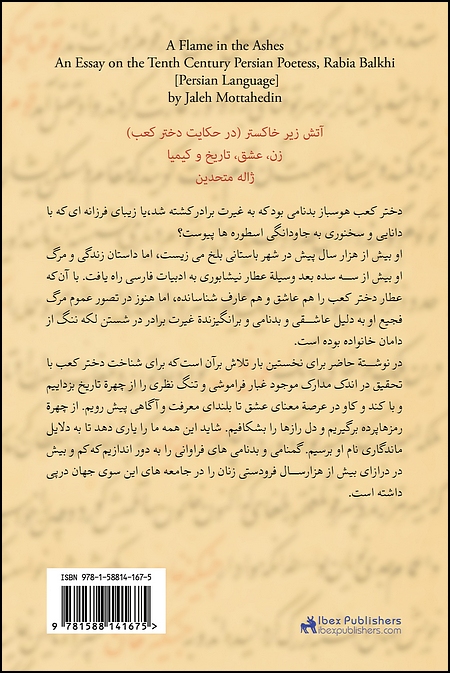 A Flame in the Ashes
An Essay on the Tenth Century Persian Poetess, Rabia Balkhi
[Persian Language]
by Jaleh Mottahedin
آتش زیر خاکستر (در حکایت دختر کعب)
زن، عشق، تاریخ و کیمیا
ژاله متحدین
دختر کعب هوسباز بدنامی بود که به غیرت برادر کشته شد، یا زیبای فرزانه ای که با
دانایی و سخنوری به جاودانگی اسطوره ها پیوست؟
او بیش از هزار سال پیش در شهر باستانی بلخ می زیست، اما داستان زندگی و مرگ
او بیش از سه سده بعد وسیلۀ عطار نیشابوری به ادبیات فارسی راه یافت. با آن که
عطار دختر کعب را هم عاشق و هم عارف شناسانده، اما هنوز در تصور عموم مرگ
فجیع او به دلیل عاشقی و بدنامی و برانگیزندۀ غیرت برادر در شستن لکه ننگ از
دامان خانواده بوده است.
در نوشتۀ حاضر برای نخستین بار تلاش برآن است که برای شناخت دختر کعب با
تحقیق در اندک مدارک موجود غبار فراموشی و تنگ نظری را از چهرۀ تاریخ بزداییم
و با کند و کاو در عرصۀ معنای عشق تا بلندای معرفت و آگاهی پیش رویم. از چهرۀ
رمزها پرده برگیریم و دل رازها را بشکافیم. شاید این همه ما را یاری دهد تا به دلایل
ماندگاری نام او برسیم. گمنامی و بدنامی های فراوانی را به دور اندازیم که کم و بیش
در درازای بیش از هزارسال فرودستی زنان را در جامعه های این سوی جهان درپی
داشته است.
ISBN 978-1-58814-167-5
9 781588 141675>
Ibex Publishers
ibexpublishers.com